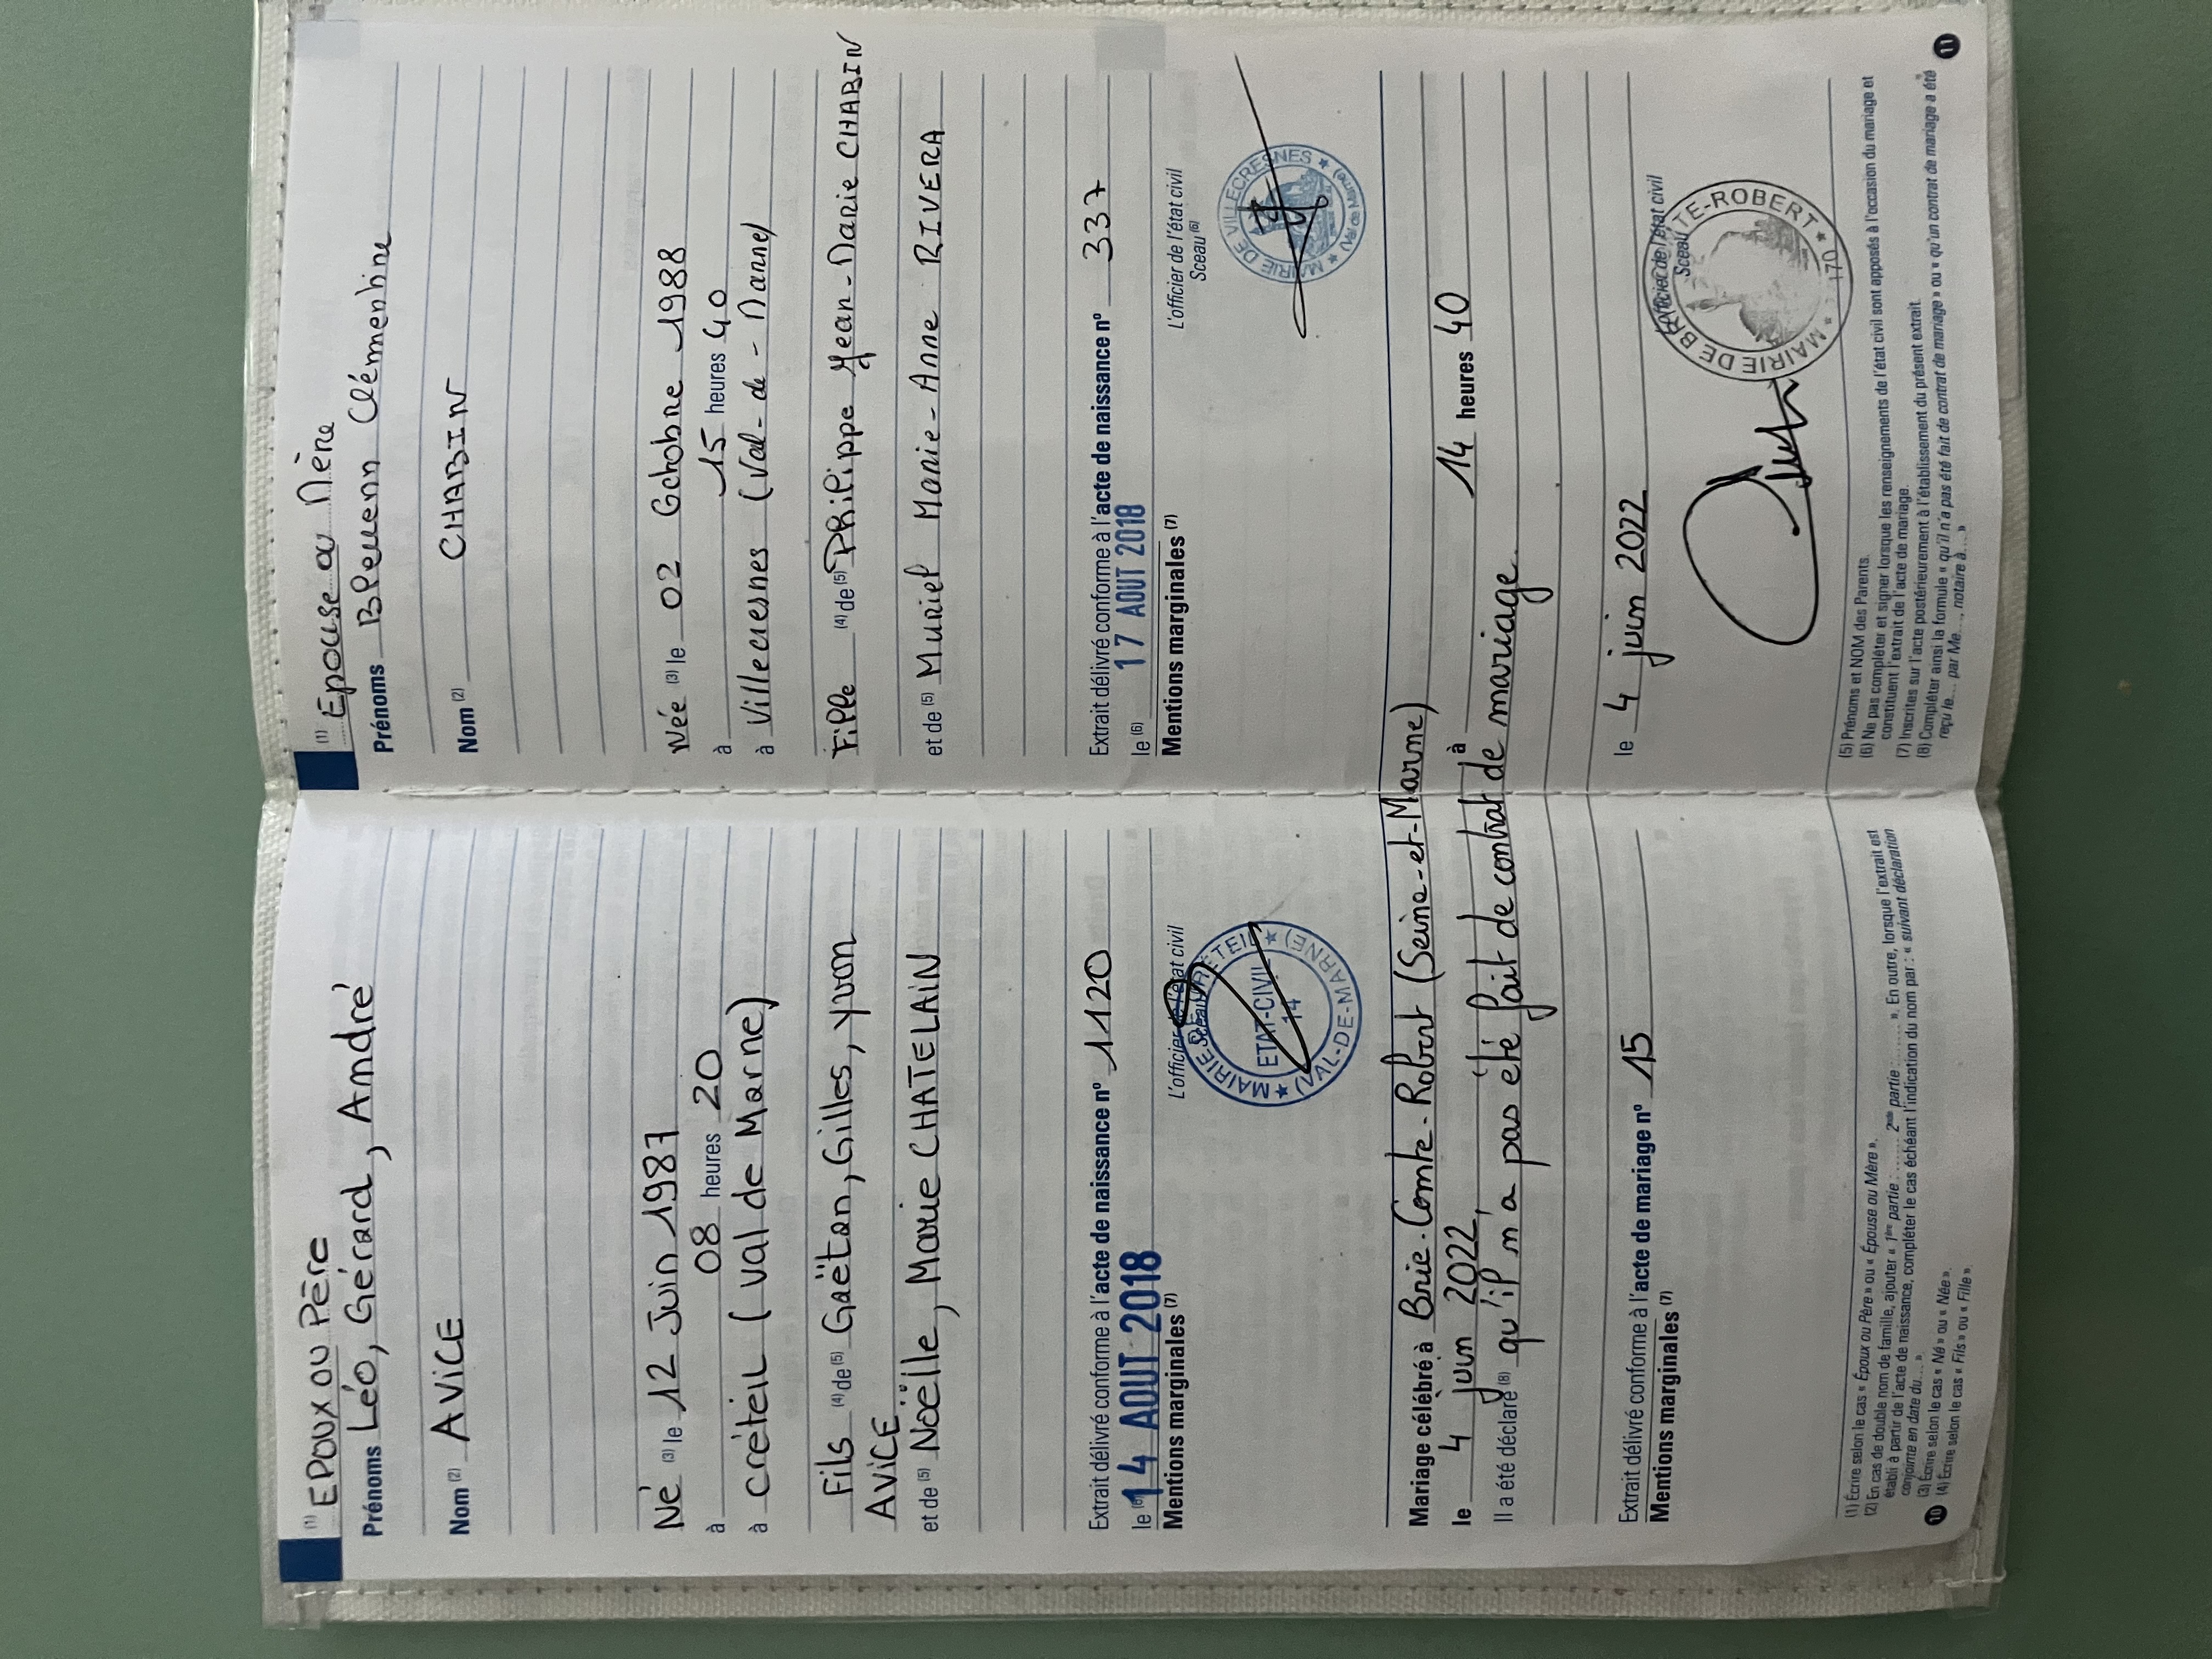 (1) EPOUX OU Père
Prénoms Léo, Gérard, André
Nom (2) AVICE
Né (3) le 12 Juin 1987
à 08 heures 20
à créteil (val de Marne)
Fils (4) de (5) Gaëtan, Gilles, yvon
AVICE
et de (5) Noëlle, Marie CHATELAIN
Extrait délivré conforme à l'acte de naissance n° 1120
le (6) 14 AOUT 2018
Mentions marginales (7)
L'officier de l'état civil
Sceau
MAIRIE DE CRÉTEIL
ETAT-CIVIL
14
(VAL-DE-MARNE)
(1) Epouse ou Mère
Prénoms Bleuenn Clémentine
Nom (2) CHABIN
Née (3) le 02 Octobre 1988
à 15 heures 40
à Villecresnes (Val-de-Marne)
Fille (4) de (5) Philippe Jean-Marie CHABIN
et de (5) Muriel Marie-Anne RIVERA
Extrait délivré conforme à l'acte de naissance n° 337
le (6) 17 AOUT 2018
Mentions marginales (7)
L'officier de l'état civil
Sceau (6)
MAIRIE DE VILLECRESNES
(Val de Marne)
Mariage célébré à Brie-Comte-Robert (Seine-et-Marne)
le 4 juin 2022, à 14 heures 40
Il a été déclaré (8) qu'il n'a pas été fait de contrat de mariage.
Extrait délivré conforme à l'acte de mariage n° 15
le 4 juin 2022
Mentions marginales (7)
L'officier de l'état civil
Sceau
MAIRIE DE BRIE-COMTE-ROBERT
(1) Écrire selon le cas « Époux ou Père » ou « Épouse ou Mère ».
(2) En cas de double nom de famille, ajouter « 1ère partie : ...... 2nde partie : ........ ». En outre, lorsque l'extrait est
établi à partir de l'acte de naissance, compléter le cas échéant l'indication du nom par : « suivant déclaration
conjointe en date du... ».
(3) Écrire selon le cas « Né » ou « Née ».
(4) Écrire selon le cas « Fils » ou « Fille ».
10
(5) Prénoms et NOM des Parents.
(6) Ne pas compléter et signer lorsque les renseignements de l'état civil sont apposés à l'occasion du mariage et
constituent l'extrait de l'acte de mariage.
(7) Inscrites sur l'acte postérieurement à l'établissement du présent extrait.
(8) Compléter ainsi la formule « qu'il n'a pas été fait de contrat de mariage » ou « qu'un contrat de mariage a été
reçu le... par Me..., notaire à... »
11